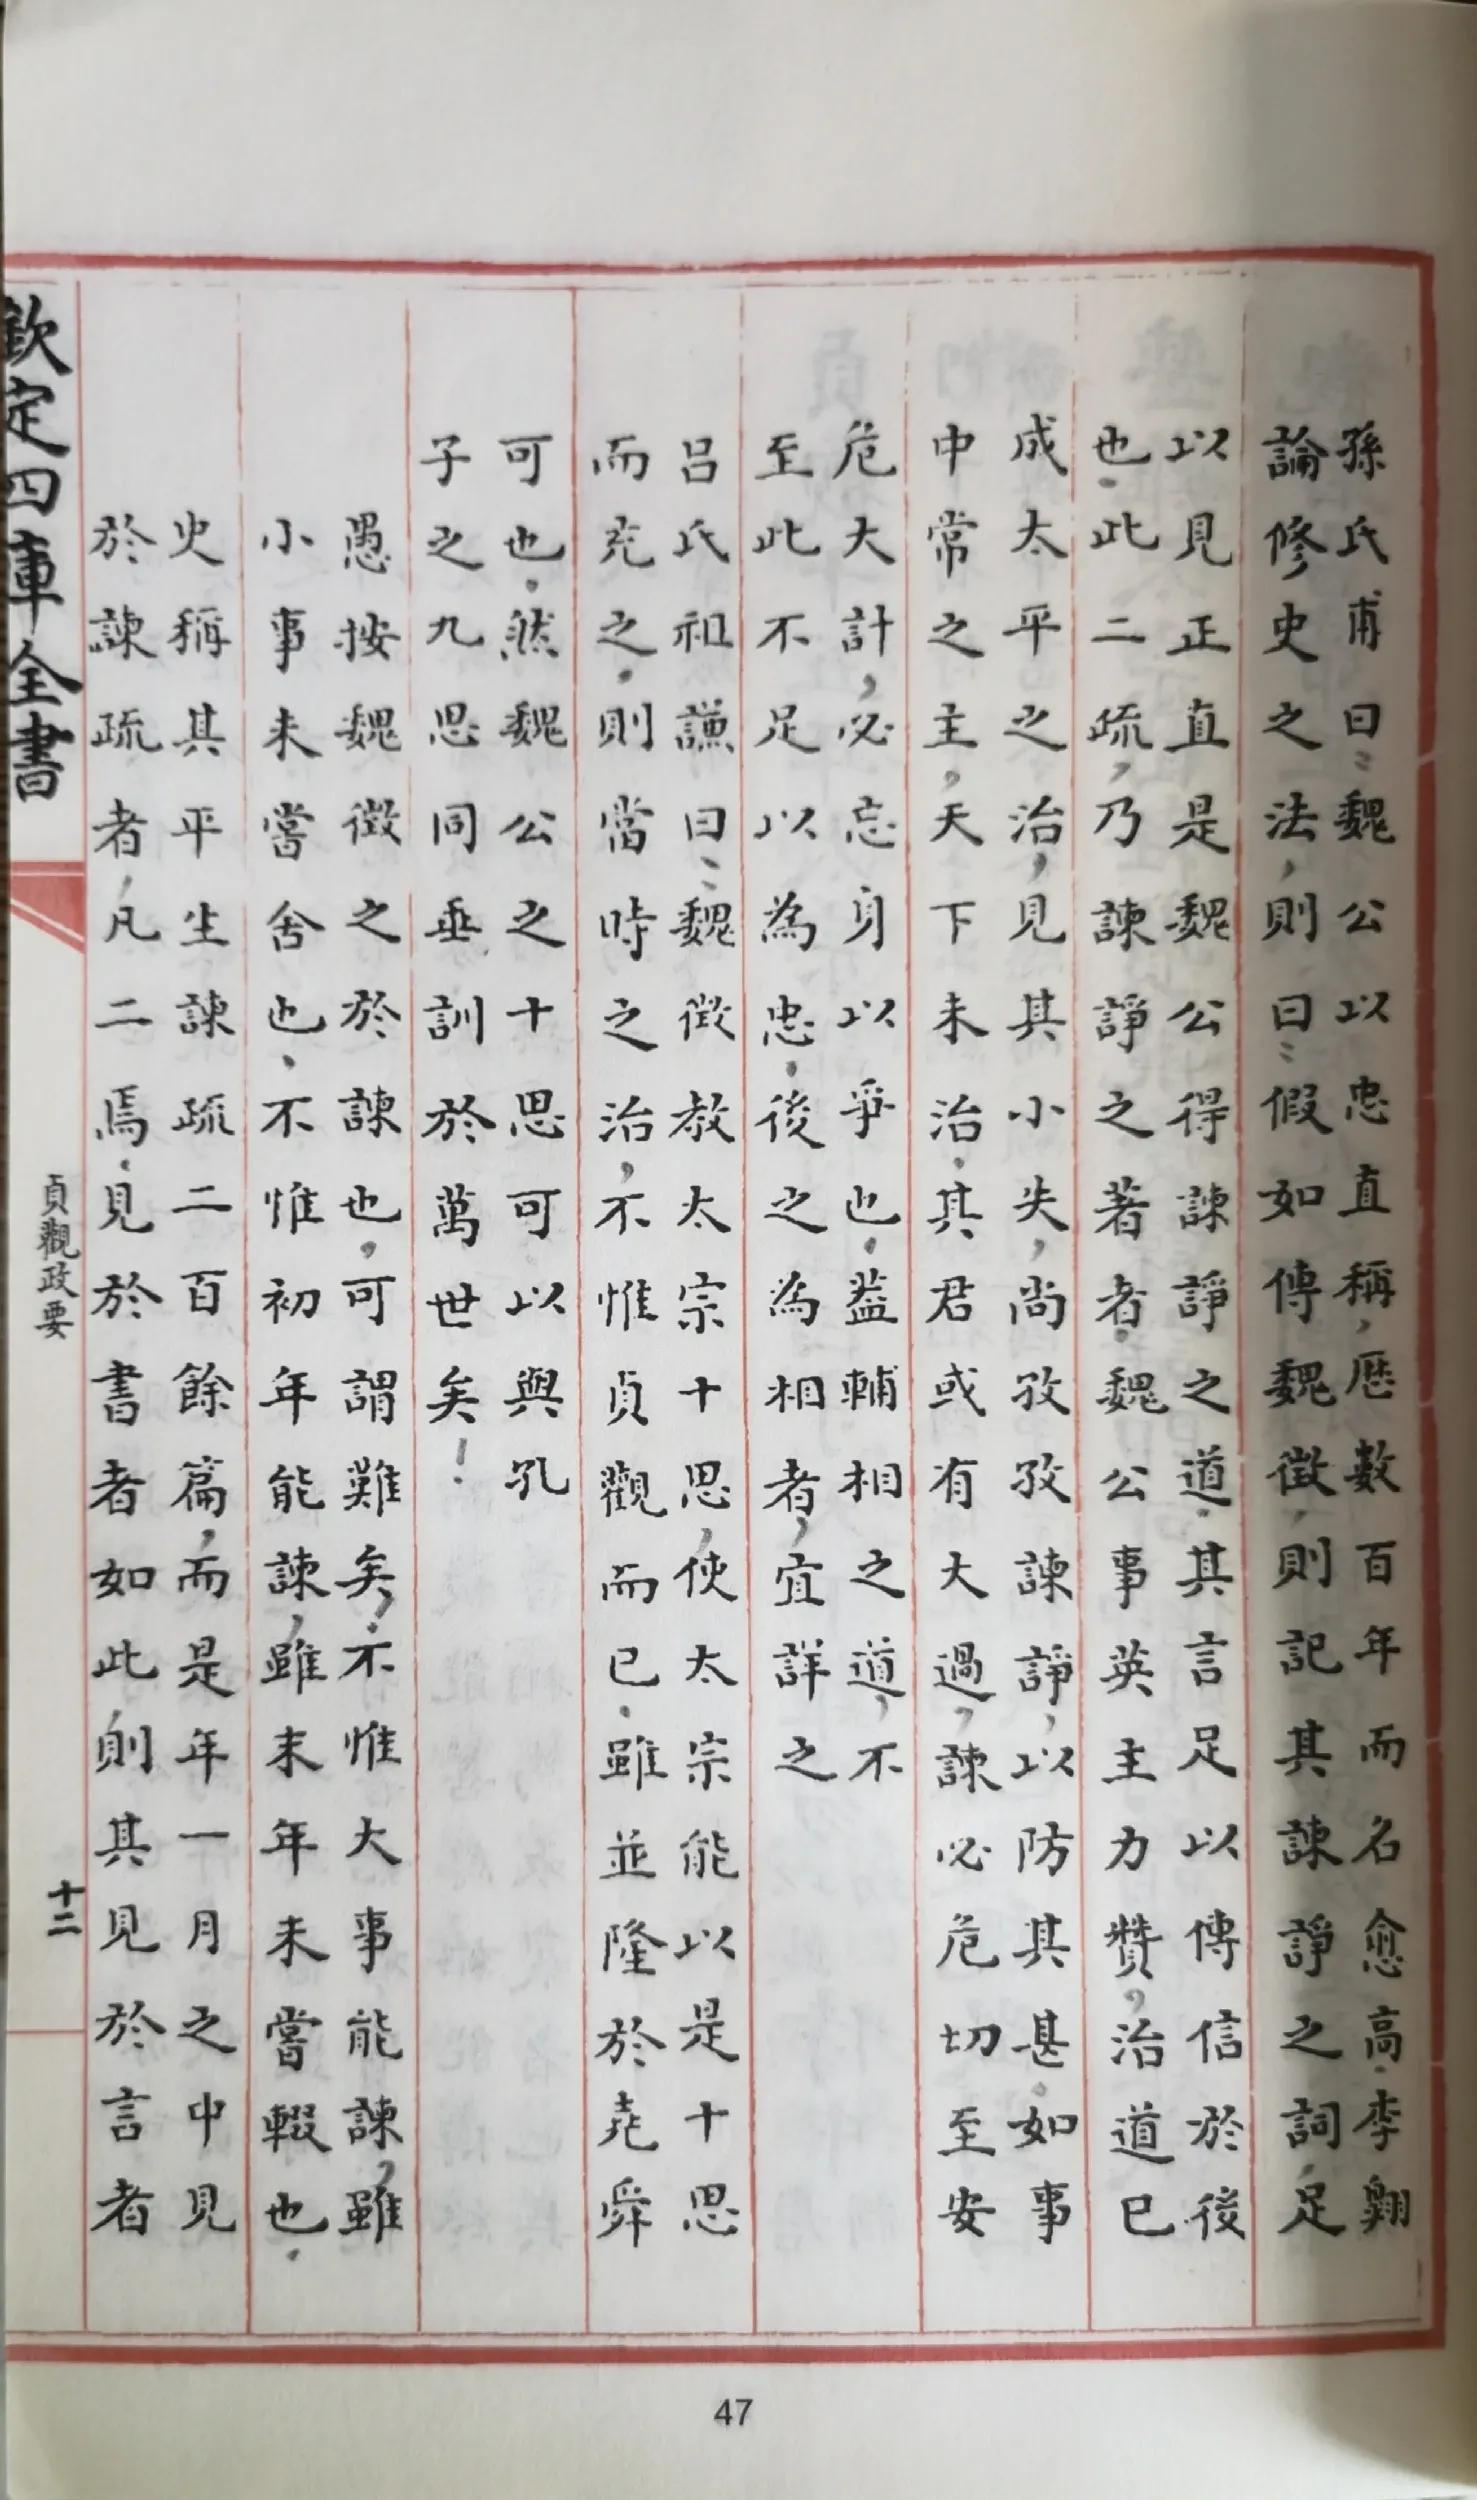 孫氏甫曰：魏公以忠直稱，歷數百年而名愈高．李翺
論修史之法，則曰：假如傳魏徵，則記其諫諍之詞，足
以見正直是魏公得諫諍之道．其言足以傳信於後
也．此二疏，乃諫諍之著者．魏公事英主力贊，治道已
成太平之治，見其小失，尚孜孜諫諍，以防其甚．如事
中常之主，天下未治．其君或有大過，諫必危切至安
危大計，必忘身以爭也．蓋輔相之道，不
至此不足以為忠．後之為相者，宜詳之
呂氏祖謙曰：魏徵教太宗十思，使太宗能以是十思
而充之．則當時之治，不惟貞觀而已．雖並隆於堯舜
可也．然魏公之十思可以與孔
子之九思同垂訓於萬世矣！
愚按魏徵之於諫也，可謂難矣，不惟大事能諫，雖
小事未嘗舍也、不惟初年能諫，雖末年未嘗輟也．
史稱其平生諫疏二百餘篇，而是年一月之中見
於諫疏者，凡二焉．見於書者如此，則其見於言者
欽定四庫全書
貞觀政要
十二
47